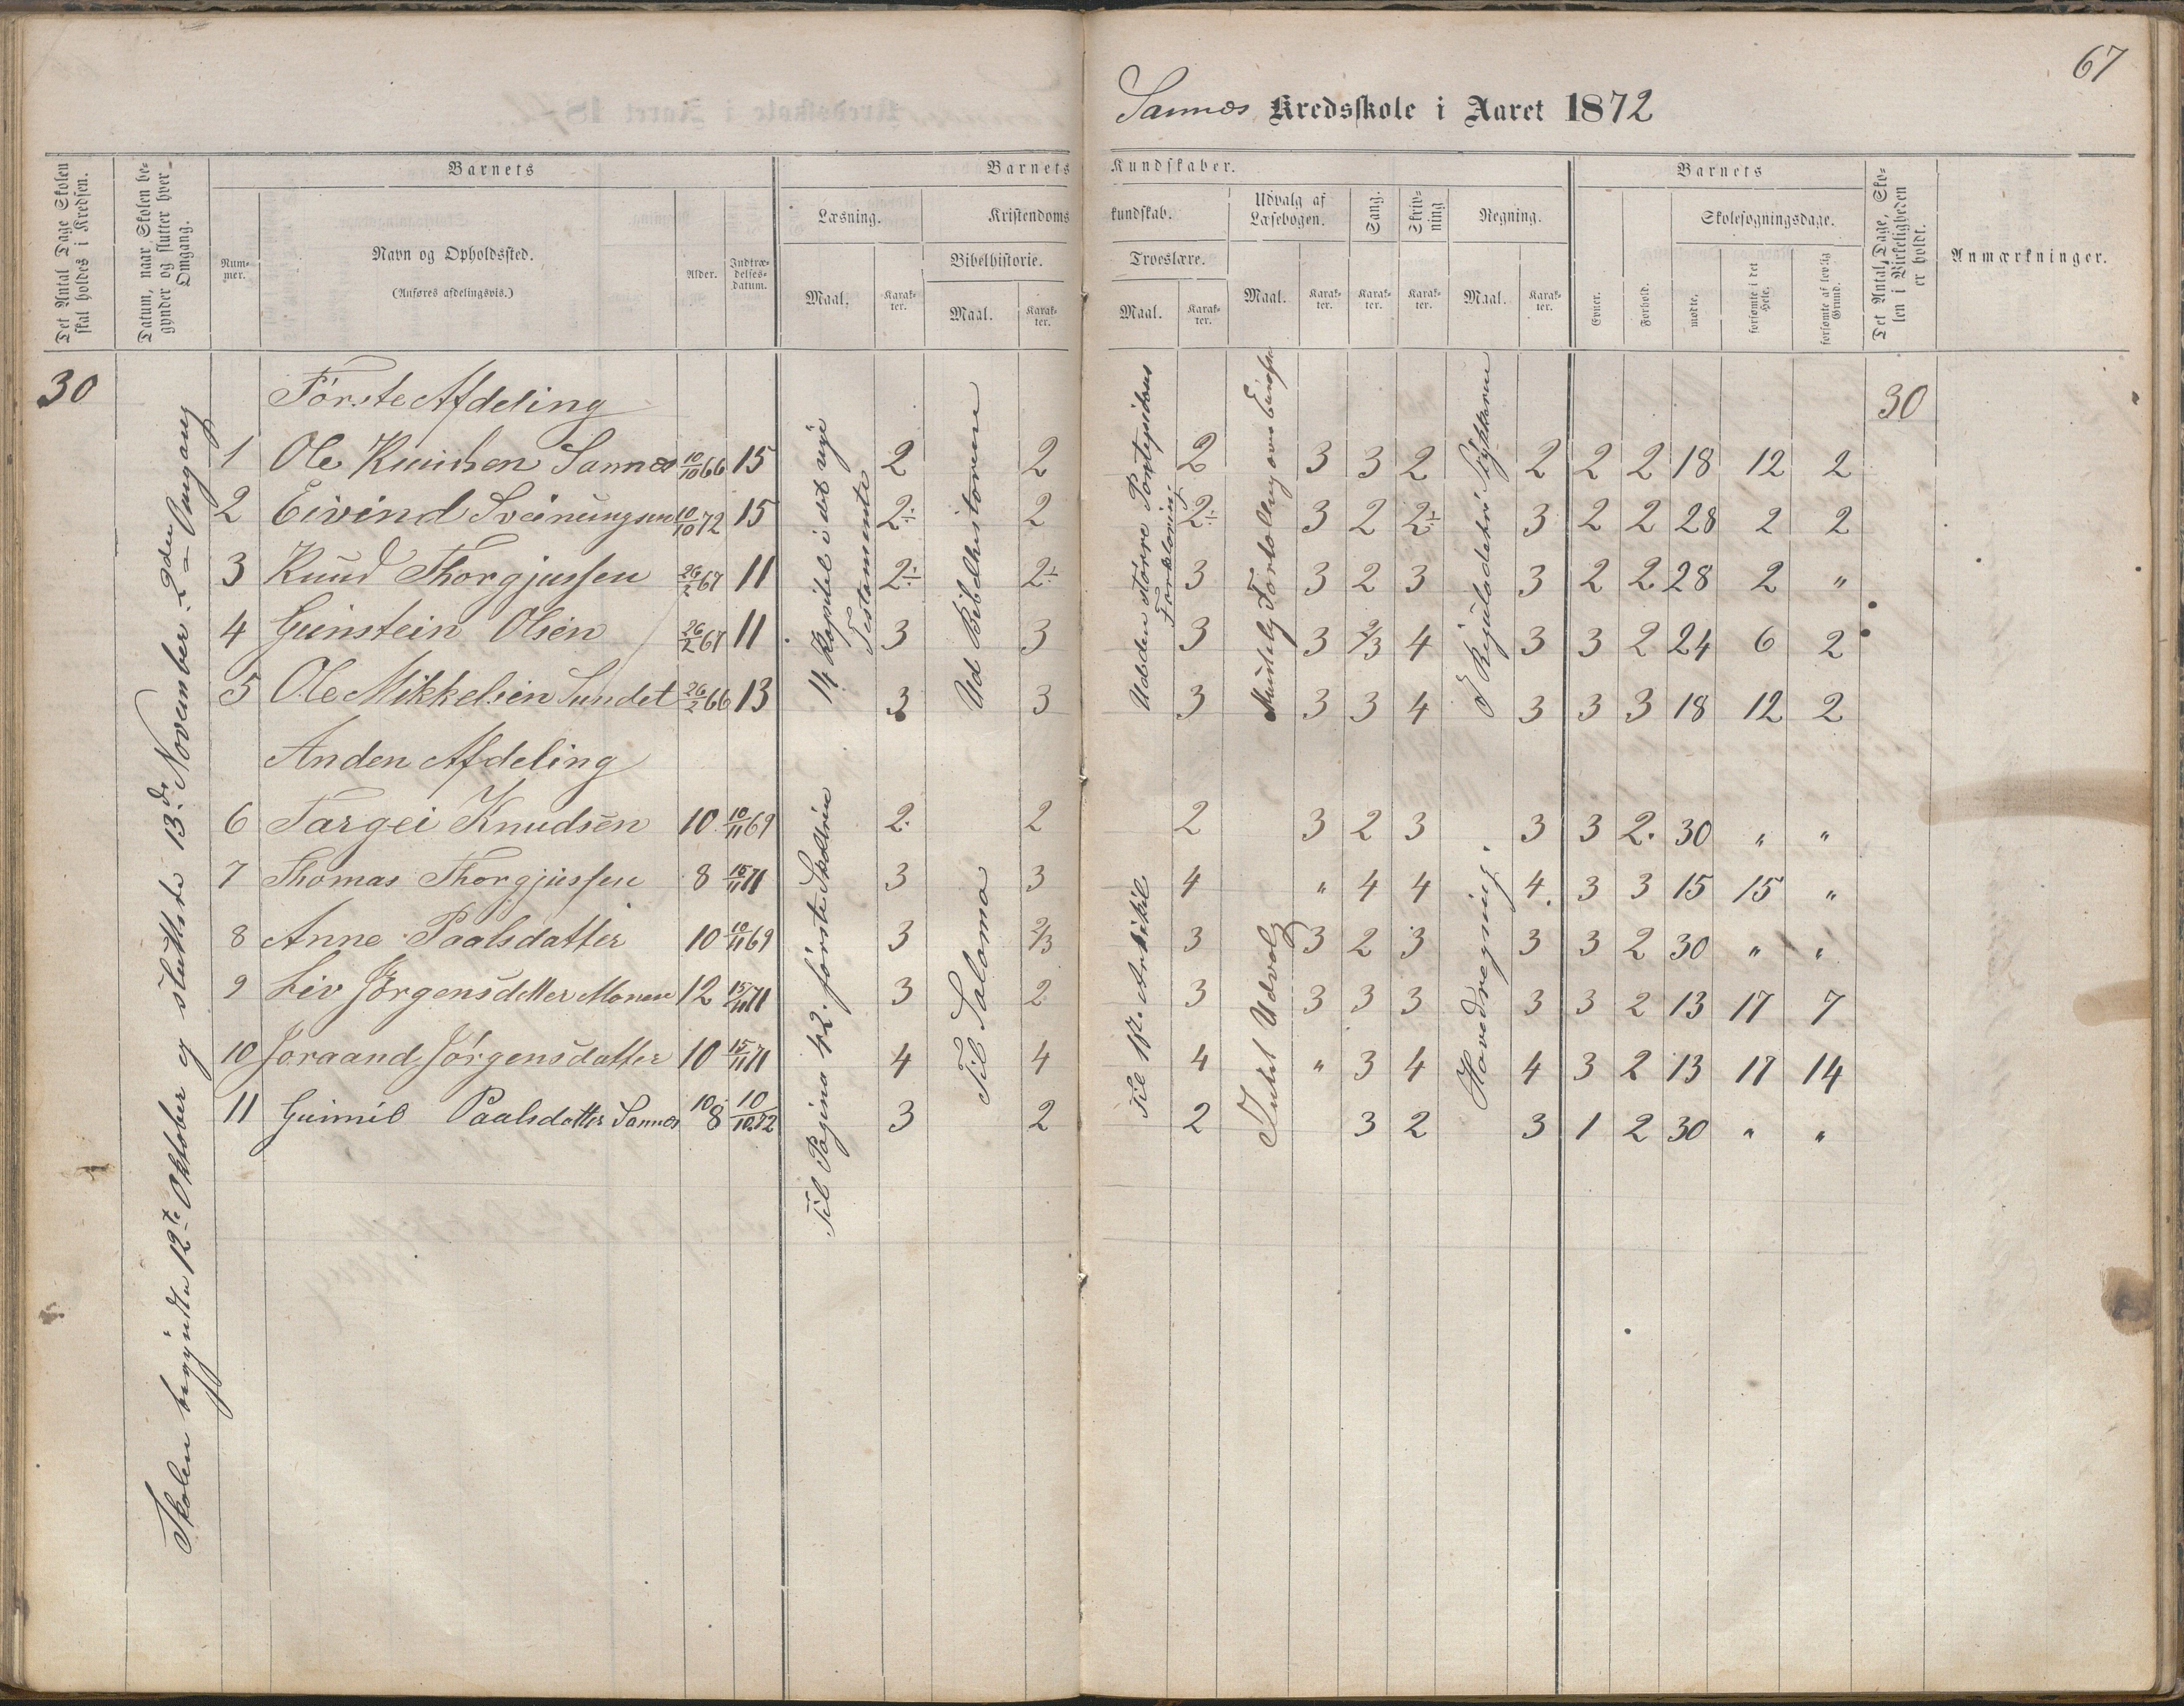 67
Sannes Kredsskole i Aaret 1872
Det Antal Dage Skolen skal holdes i Kredsen.
Datum, naar Skolen begynder og slutter hver Omgang.
Barnets
Nummer.
Navn og Opholdssted.
(Anføres afdelingsvis.)
Alder.
Indtrædelsesdatum.
Barnets Kundskaber.
Læsning.
Maal.
Karakter.
Kristendomskundskab.
Bibelhistorie.
Maal.
Karakter.
Troeslære.
Maal.
Karakter.
Udvalg af Læsebogen.
Maal.
Karakter.
Sang.
Karakter.
Skrivning
Karakter.
Regning.
Maal.
Karakter.
Barnets
Evner.
Forhold.
Skolesøgningsdage.
mødte.
forsømte i det Hele.
forsømte af lovlig Grund.
Det Antal Dage, Skolen i Virkeligheden er holdt.
Anmærkninger.
30
Skolen begyndte 12te Oktober og sluttede 13de November 2den Omgang
Første Afdeling
30
14 Kapitel i det nye Testamente
Ud Bibelhistorien
Udden større Pontopidans Forklaring.
Mundtlig Fortælling over Europa
I Reguladetri Stykkerne
1 Ole Knudsen Sannes 10/10 66 15 2 2 2 3 3 2 2 2 2 18 12 2
2 Eivind Sveinungsen 10/10 72 15 2÷ 2 2÷ 3 2 2÷ 3 2 2 28 2 2
3 Knud Thorgjussen 26/2 67 11 2÷ 2÷ 3 3 2 3 3 2 2. 28 2 "
4 Gunstein Olsen 26/2 67 11 3 3 3 3 2/3 4 3 3 2 24 6 2
5 Ole Mikkelsen Sundet 26/2 66 13 3 3 3 3 3 4 3 3 3 18 12 2
Anden Afdeling
Til Pagina 42. første Skoletrin
Til Saloma
Til 17. Artikel
Intet Udvalg
Hovedregning.
6 Targei Knudsen 10 10/11 69 2. 2 2 3 2 3 3 3 2. 30 " "
7 Thomas Thorgjussen 8 15/11 71 3 3 4 " 4 4 4. 3 3 15 15 "
8 Anne Paalsdatter 10 10/11 69 3 2/3 3 3 2 3 3 3 2 30 " "
9 Liv Jørgensdatter Monen 12 15/11 71 3 2 3 3 3 3 3 3 2 13 17 7
10 Joraand Jørgensdatter 10 15/11 71 4 4 4 " 3 4 4 3 2 13 17 14
11 Gunnil Paalsdatter Sannes 10 8 10/10.72 3 2 2 3 2 3 1 2 30 " "